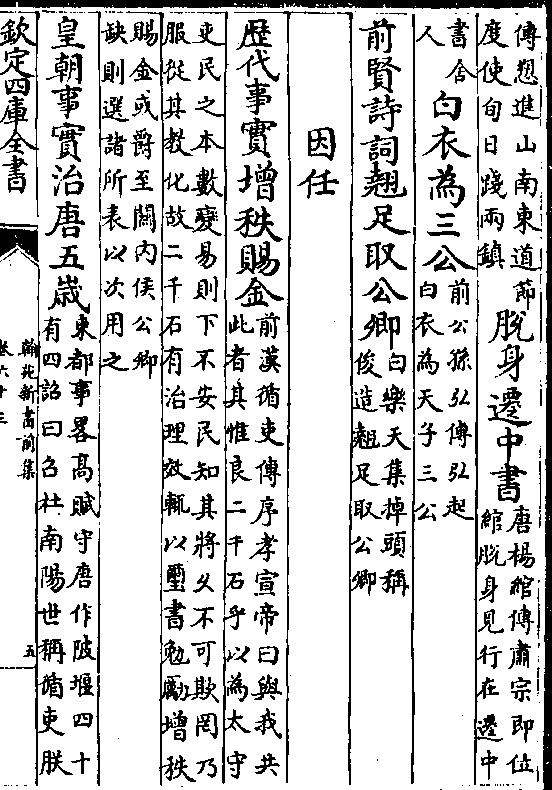 傳愬進山南東道節
度使旬日踐兩鎮
脫身遷中書
唐楊綰傳肅宗即位
綰脫身見行在遷中
書舍
人
白衣為三公
前公孫弘傳弘起
白衣為天子三公
前賢詩詞翹足取公卿
白樂天集掉頭稱
俊造翹足取公卿
因任
歴代事實增秩賜金
前漢循吏傳序孝宣帝曰與我共
此者其惟良二千石乎以為太守
吏民之本數變易則下不安民知其將久不可欺罔乃
服從其教化故二千石有治理效輒以璽書勉勵增秩
賜金或爵至關內侯公卿
缺則選諸所表以次用之
皇朝事實治唐五歲
東都事畧高賦守唐作陂堰四十
有四詔曰召杜南陽世稱循吏朕
欽定四庫全書
翰苑新書前集
卷六十三
五